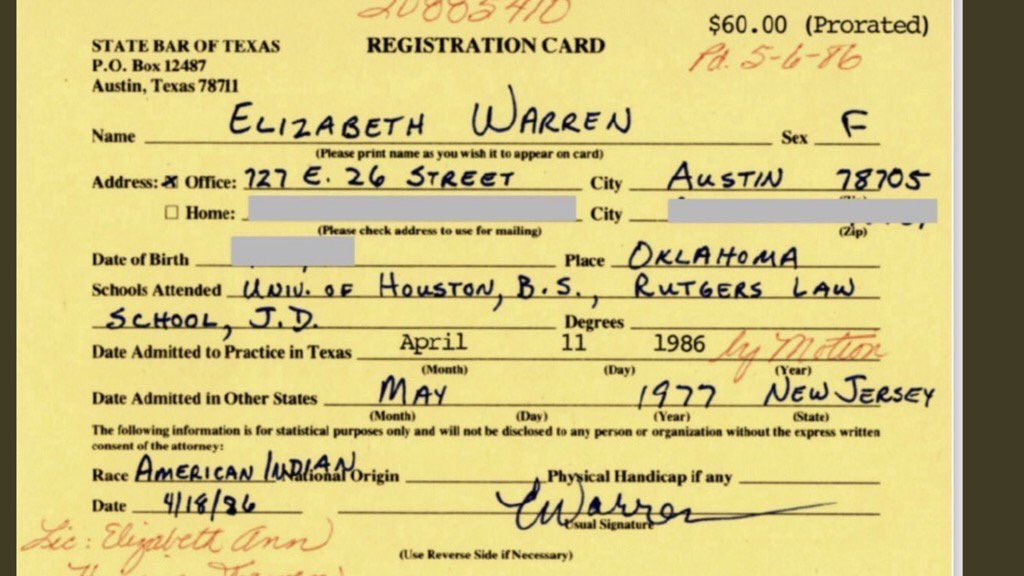 20883410
$60.00 (Prorated)
STATE BAR OF TEXAS REGISTRATION CARD Pd. 5-6-86
P.O. Box 12487
Austin, Texas 78711
Name ELIZABETH WARREN Sex F
(Please print name as you wish it to appear on card)
Address: ☒ Office: 727 E. 26 STREET City AUSTIN 78705
☐ Home: City
(Please check address to use for mailing) (Zip)
Date of Birth Place OKLAHOMA
Schools Attended UNIV. OF HOUSTON, B.S., RUTGERS LAW
SCHOOL, J.D. Degrees
Date Admitted to Practice in Texas April 11 1986 by Motion
(Month) (Day) (Year)
Date Admitted in Other States MAY 1977 NEW JERSEY
(Month) (Day) (Year) (State)
The following information is for statistical purposes only and will not be disclosed to any person or organization without the express written
consent of the attorney:
Race AMERICAN INDIAN National Origin Physical Handicap if any
Date 4/18/86 EWarren
Usual Signature
Lic: Elizabeth Ann
(Use Reverse Side if Necessary)